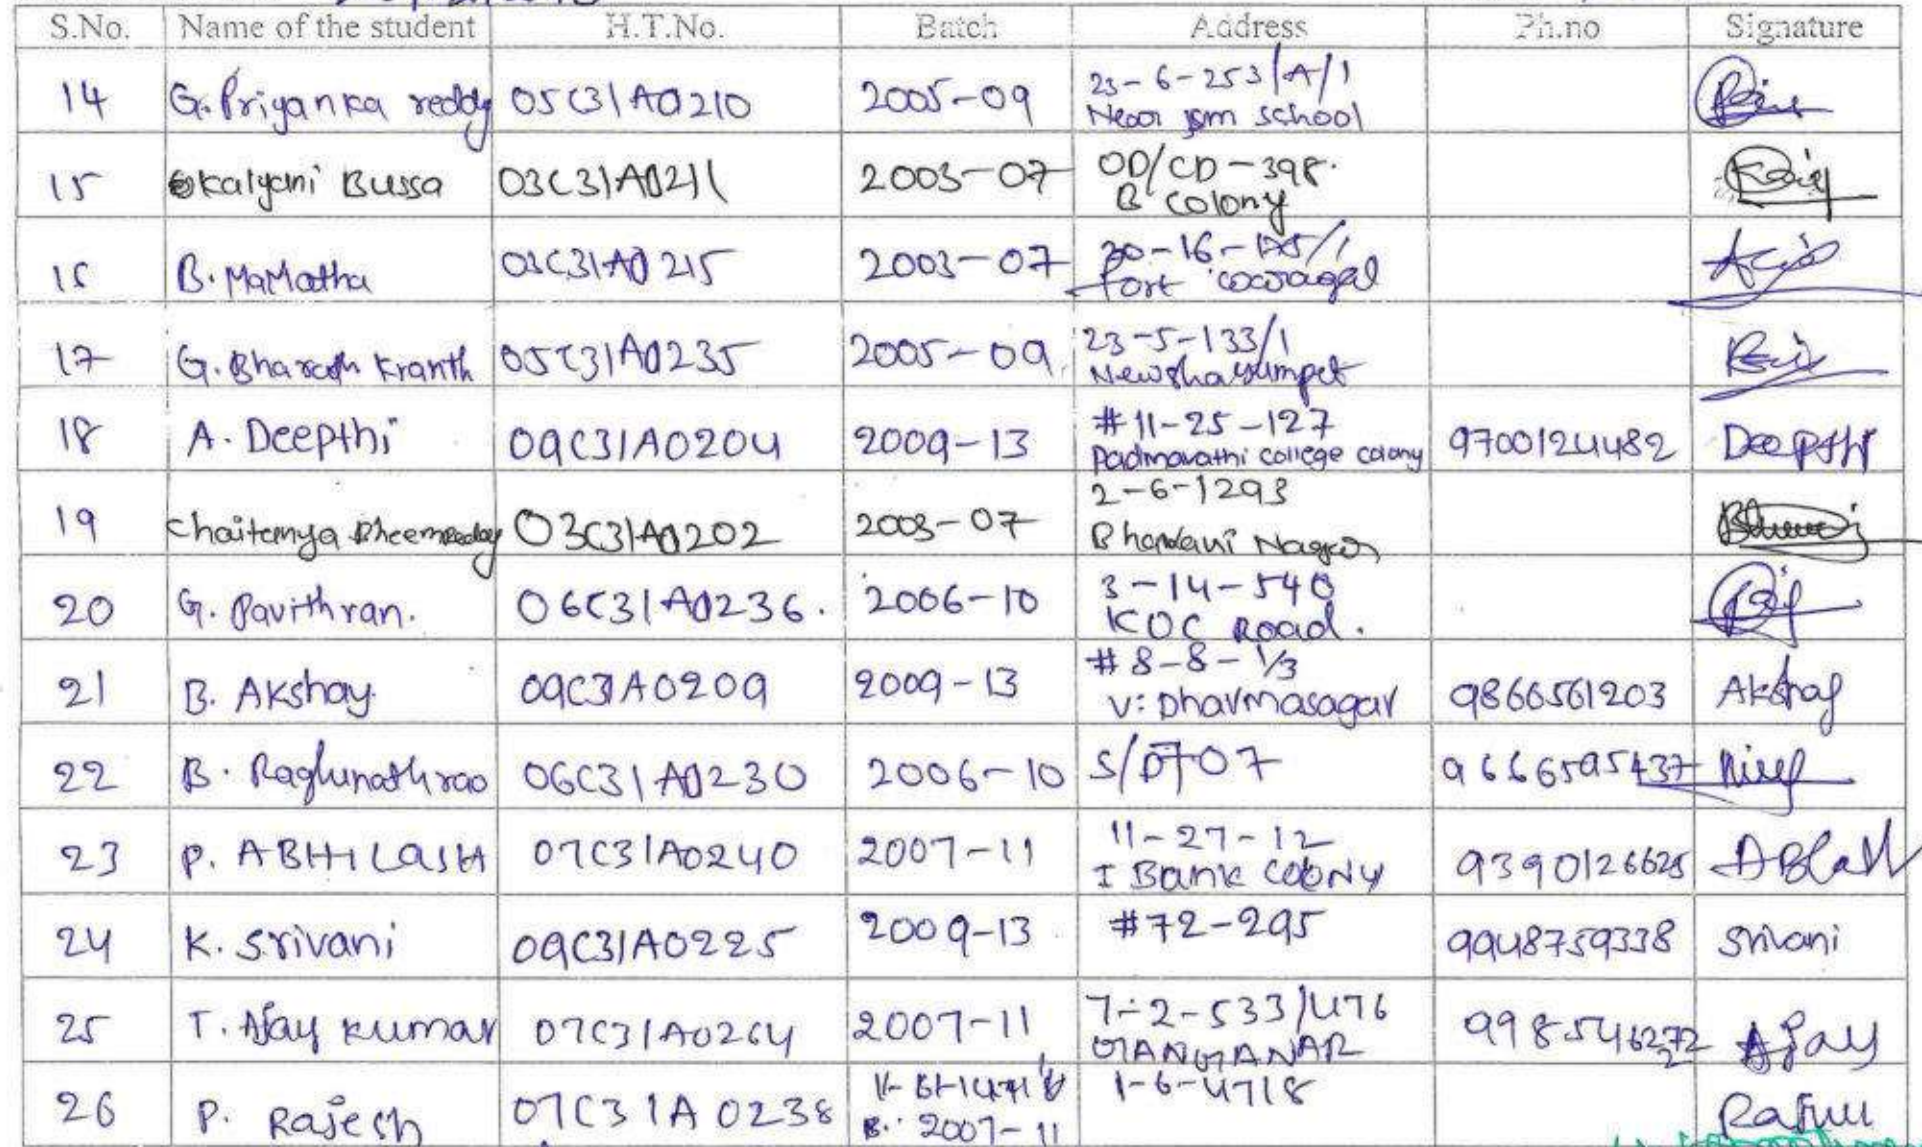 S.No. Name of the student H.T.No. Batch Address Ph.no Signature
14 G. Priyanka reddy 05C31A0210 2005-09 23-6-253/A/1
Near school
15 Kalyani Bussa 03C31A0211 2003-07 OD/CD-398.
B Colony
16 B. MaMatha 03C31A0215 2003-07
Fort
17 G. Bharath Kranth 05C31A0235 2005-09 23-5-133/1
18 A. Deepthi 09C31A0204 2009-13 #11-25-127 9700124482 Deepthi
Padmavathi college colony
19 Chaitanya Bheemreddy 03C31A0202 2003-07 2-6-1293
Bhavani Nagar
20 G. Pavithran. 06C31A0236. 2006-10 3-14-540
KUC Road.
21 B. Akshay. 09C31A0209 2009-13 #8-8-1/3 9866561203 Akshay
V: Dharmasagar
22 B. Raghunathrao 06C31A0230 2006-10 9666595437
23 P. ABHILASH 07C31A0240 2007-11 11-27-12
I Bank COlONY
24 K. Srivani 09C31A0225 2009-13 #72-295 9948759338 Srivani
25 T. Ajay Kumar 07C31A0264 2007-11 7-2-533/476 Ajay
26 P. Rajesh 07C31A0238 1-6-4718
2007-11